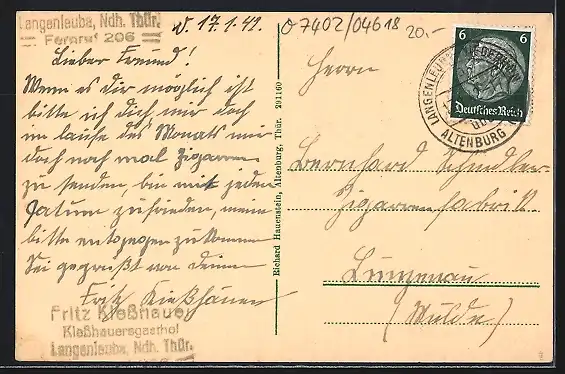 Langenleuba, Ndh. Thür.
Fernruf 206
d. 17.1.41.
07402/04618
20.-
Lieber Freund!
Wenn es dir möglich ist
bitte ich dich mir doch
im laufe des Monats mir
doch noch mal Zigarren
zu senden, bin mit jeden
Datum zufrieden, meine
bitte entgegen zu kommen
Sei gegrüßt von deinem
Fritz Kießhauer
Fritz Kießhauer
Kießhauersgasthof
Langenleuba, Ndh. Thür.
Richard Hauenstein, Altenburg, Thür. 291160
6 6
Deutsches Reich
ALTENBURG
Herrn
Bernhard Schindler
Zigarrenfabrik
Lunzenau
(Mulde)